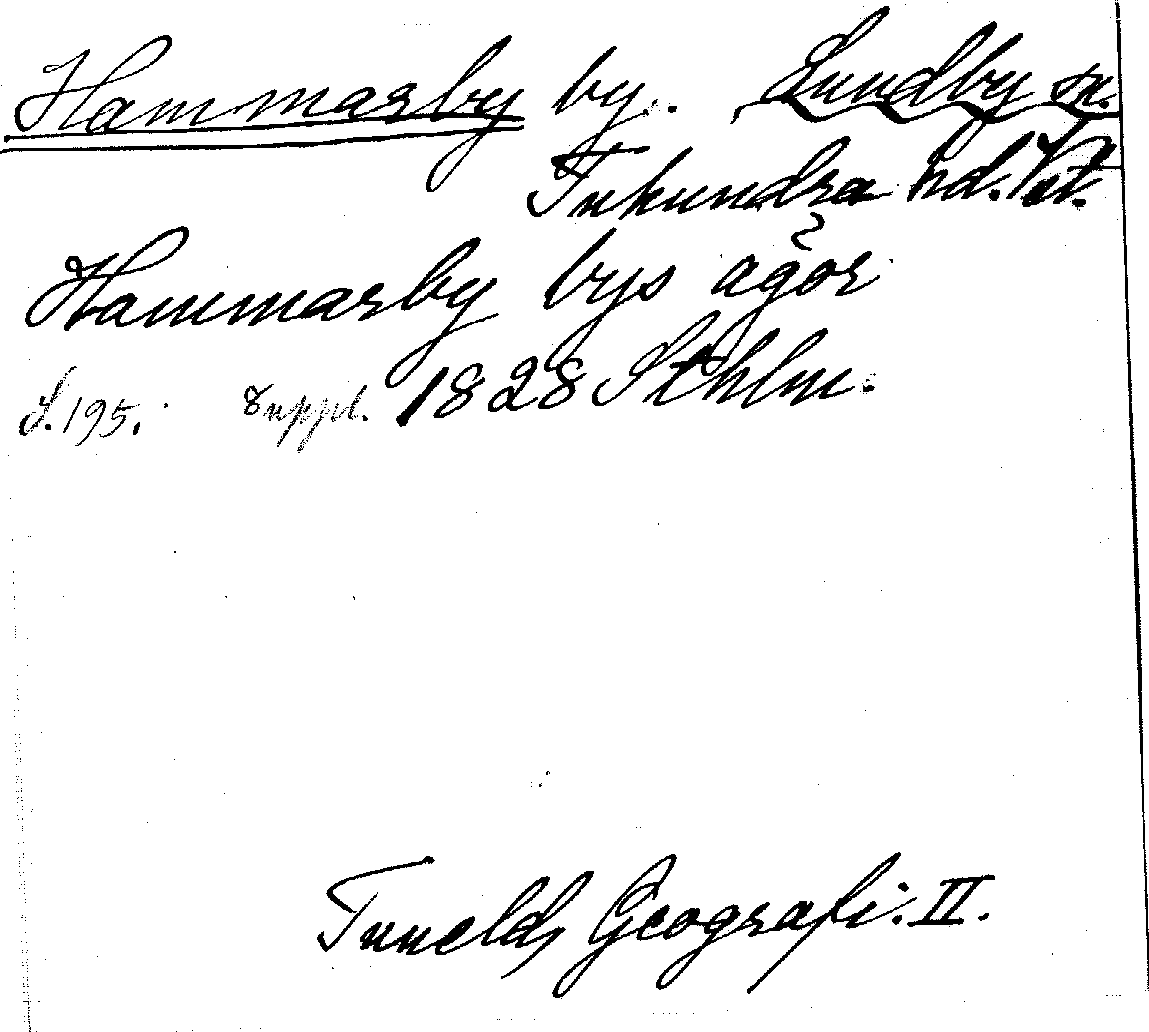 Hammarby by. Lundby sn.
Tuhundra hd. Vstm.
Hammarby bys ägor
S. 195. Suppl. 1828 Sthlm.
Tunelds Geografi. II.